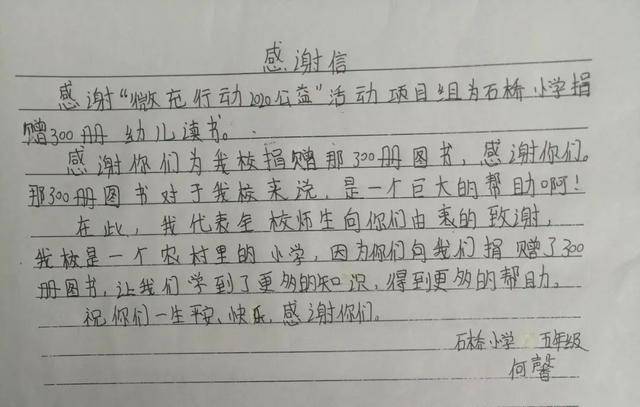 感谢信
感谢“微充行动2020公益”活动项目组为石桥小学捐
赠300册幼儿读书。
感谢你们为我校捐赠那300册图书，感谢你们。
那300册图书对于我校来说，是一个巨大的帮助啊！
在此，我代表全校师生向你们由衷的致谢，
我校是一个农村里的小学，因为你们向我们捐赠了300
册图书，让我们学到了更多的知识，得到更多的帮助。
祝你们一生平安、快乐，感谢你们。
石桥小学 五年级
何馨